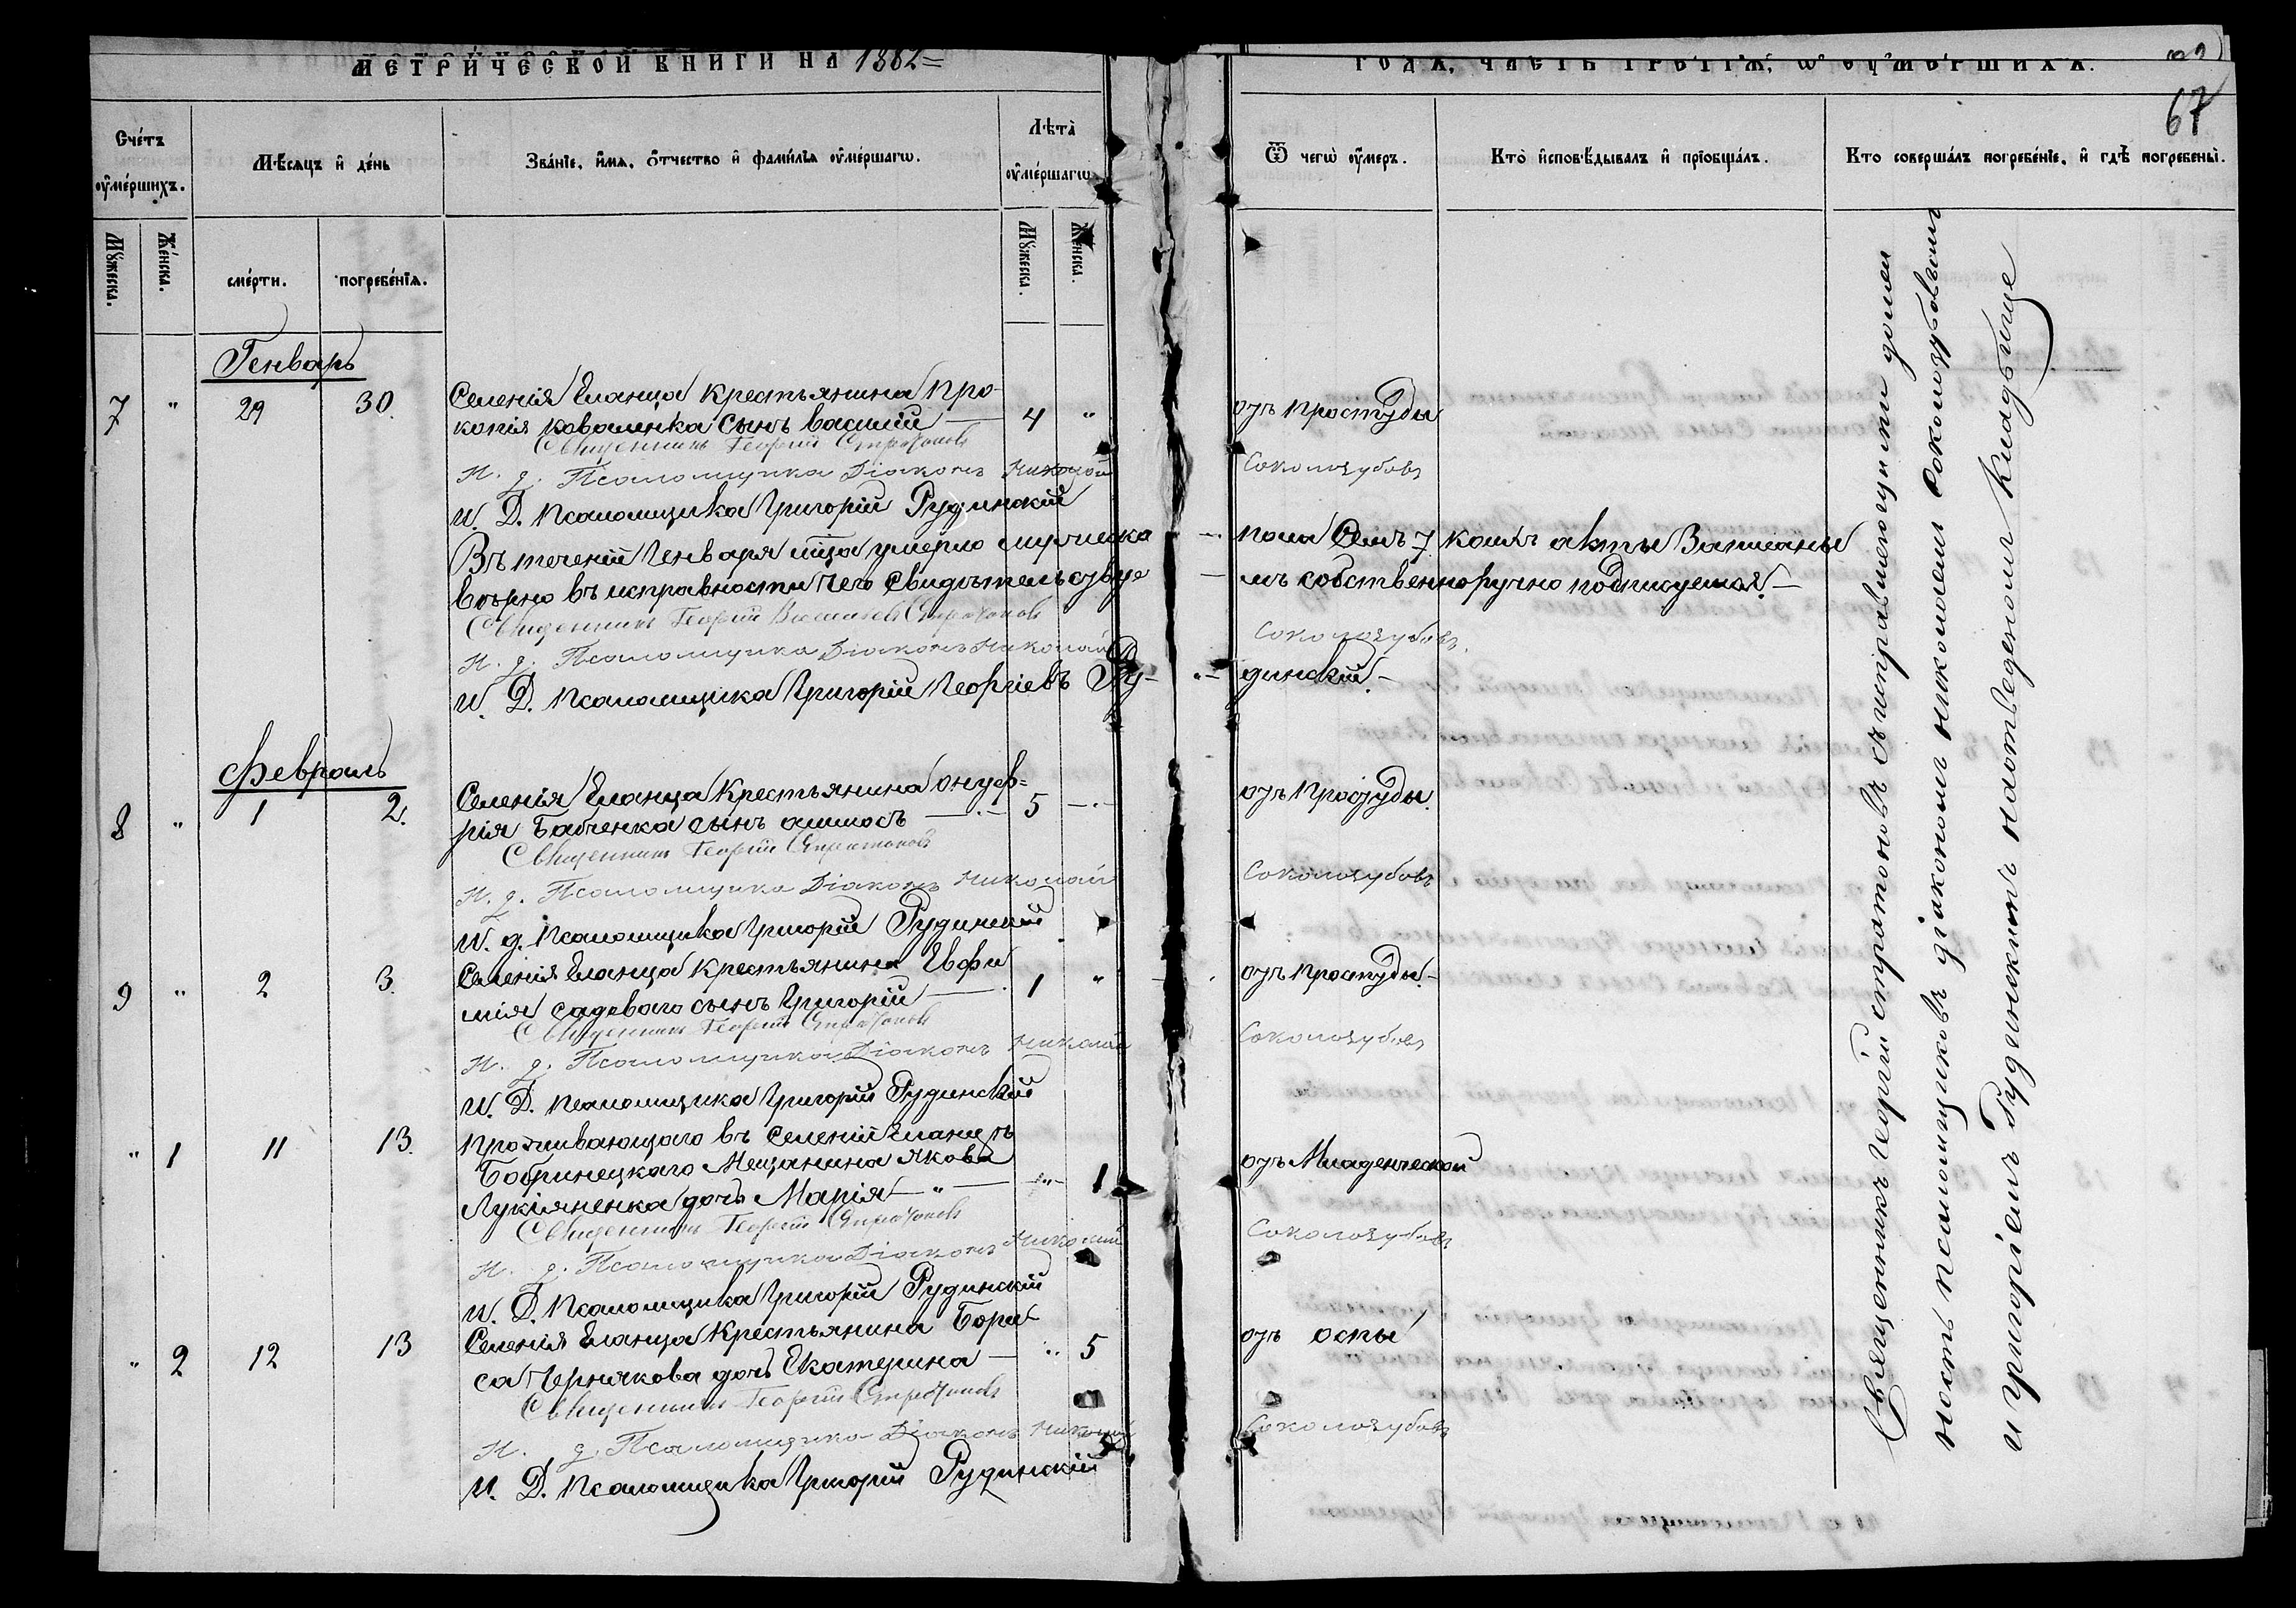 МЕТРИЧЕСКОЙ КНИГИ НА 1882 =
ГОДА, ЧАСТЬ ТРЕТІѦ, Ѡ ОУМЕРШИХЪ.
67
Счетъ оумершихъ.
Мѣсяцъ и день
Званіе, имя, отчество и фамилія оумершагѡ.
Лѣта оумершагѡ
Ѿ чегѡ оумеръ.
Кто исповѣдывалъ и пріобщалъ.
Кто совершалъ погребеніе, и гдѣ погребены.
Мужеска.
Женска.
смерти.
погребенія.
Мужеска.
Женска.
Генварь
7 " 29 30. Селенія Еланца крестьянина Про-
копія Коваленка сынъ Василій — 4 " отъ простуды
Священникъ Георгій Стратоновъ
И. д. Псаломщика Діаконъ Николай Соколозубовъ
И. Д. Псаломщика Григорій Рудинскій
Въ теченіи Генваря мца умерло мужеска — пола семь 7 коихъ акты записаны
вѣрно въ исправности чего свидѣтельствуе — мъ собственноручно подписуемся. —
Священникъ Георгій Васильевъ Стратоновъ
И. д. Псаломщика Діаконъ Николай Соколозубовъ
И. Д. Псаломщика Григорій Георгіевъ Ру- динскій. —
Февраль
8 " 1 2. Селенія Еланца крестьянина Онуф-
рія Бабченка сынъ — 5 отъ простуды.
Священникъ Георгій Стратоновъ
И. д. Псаломщика Діаконъ Николай Соколозубовъ
И. д. Псаломщика Григорій Рудинскій
9 " 2 3. Селенія Еланца крестьянина Евфи
мія Садоваго сынъ Григорій — 1 " отъ простуды. —
Священникъ Георгій Стратоновъ
И. д. Псаломщика Діаконъ Николай Соколозубовъ
И. Д. Псаломщика Григорій Рудинскій
" 1 11 13. Проживающаго въ селеніи Еланцѣ
Бобринецкаго мещанина Якова
Лукіяненка дочь Марія — " — 1 отъ младенческой
Священникъ Георгій Стратоновъ
И. д. Псаломщика Діаконъ Николай Соколозубовъ
И. Д. Псаломщика Григорій Рудинскій
" 2 12 13 Селенія Еланца крестьянина Бори-
са Чернякова дочь Екатерина — " 5 отъ оспы
Священникъ Георгій Стратоновъ
И. д. Псаломщика Діаконъ Николай Соколозубовъ
И. Д. Псаломщика Григорій Рудинскій
Священникъ Георгій Стратоновъ съ исправляющими долж
ность псаломщиковъ діакономъ Николаемъ Соколозубовымъ
и Григоріемъ Рудинскимъ на отведеномъ кладбище